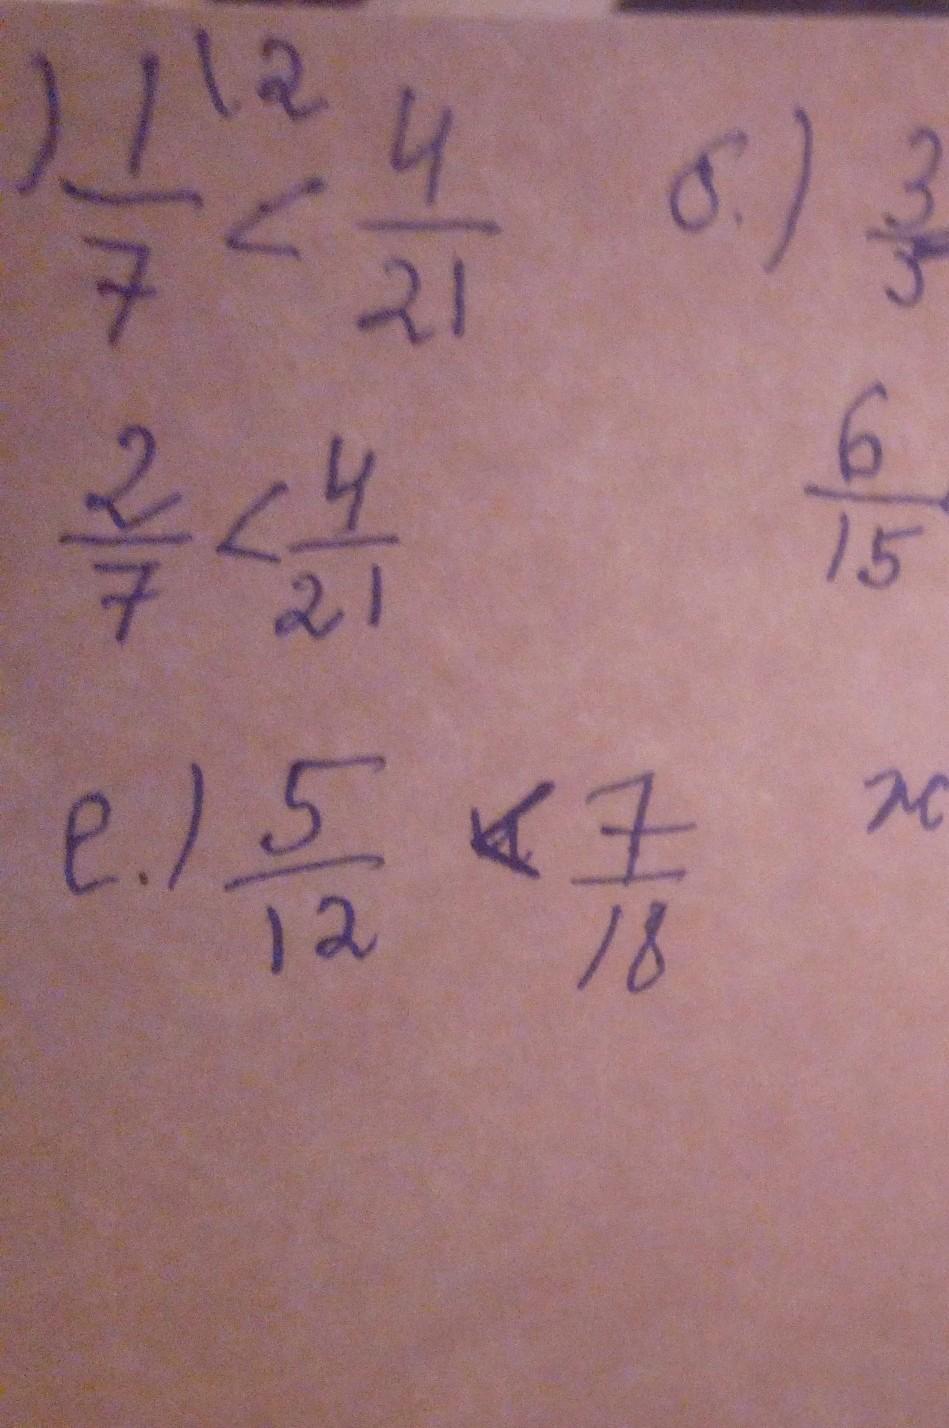 ) 1\2/7 < 4/21 б.) 3/5
2/7 < 4/21 6/15
е.) 5/12 < 7/18 ж